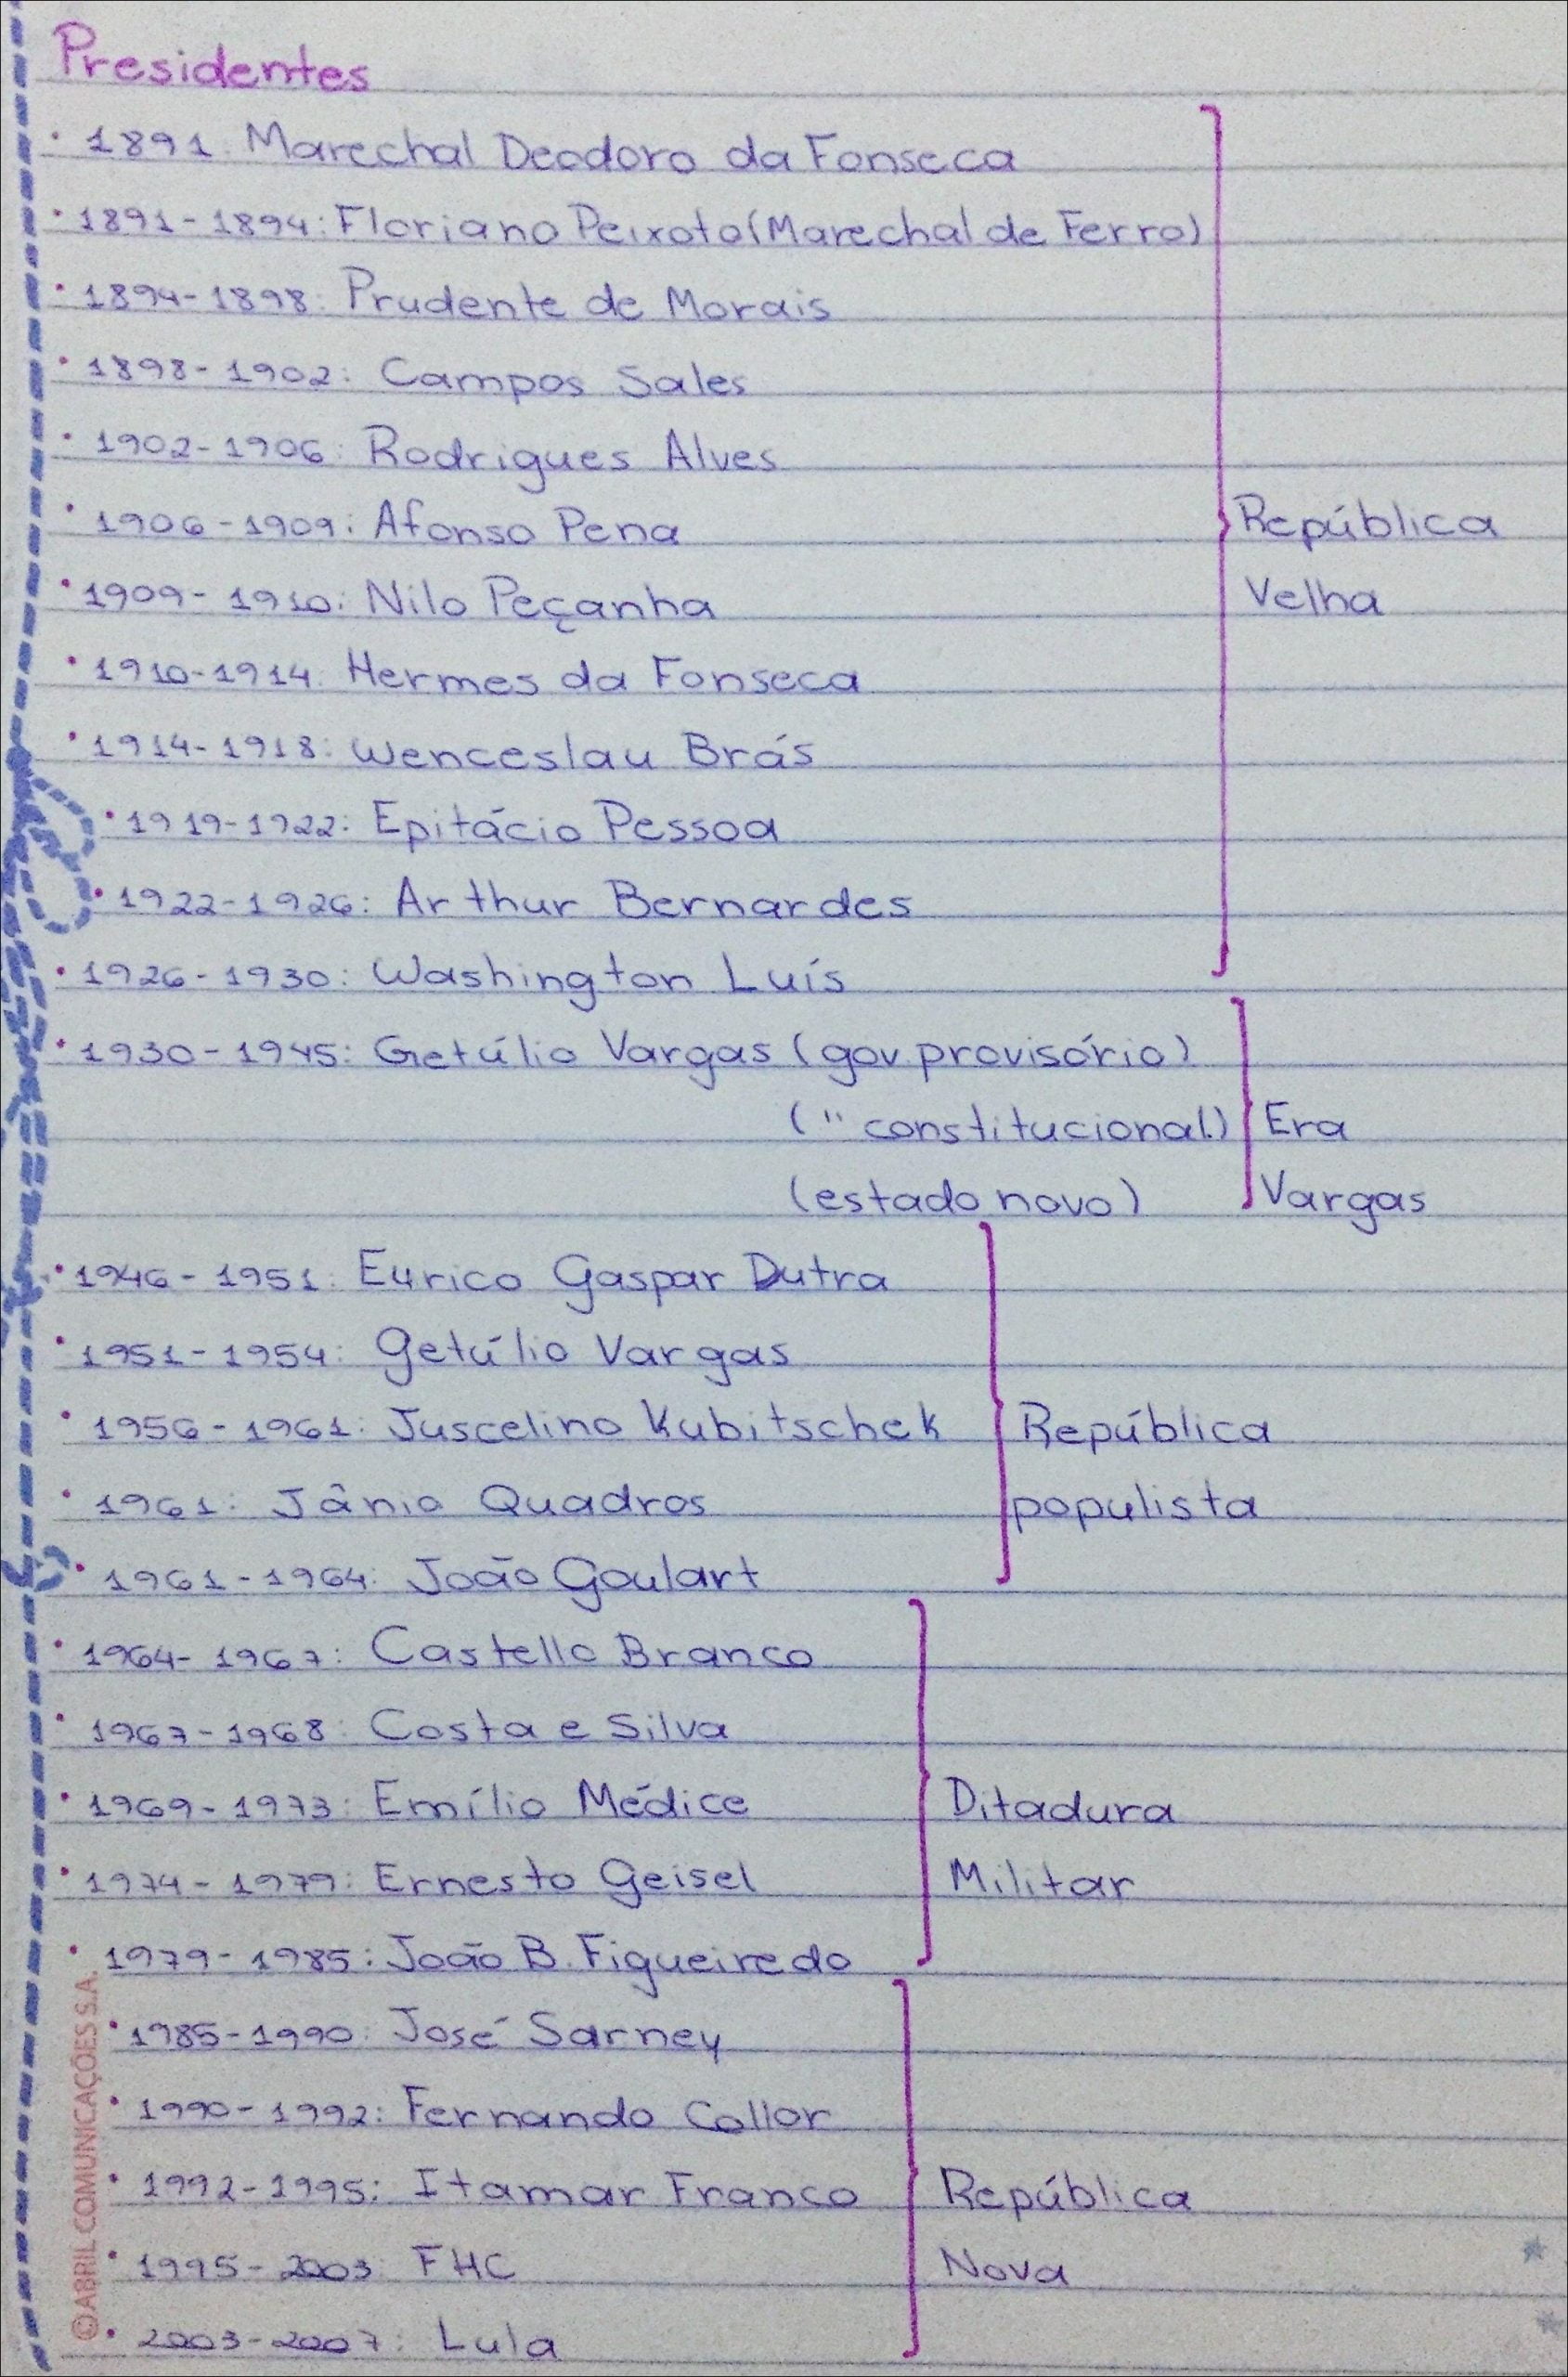 Presidentes
• 1891: Marechal Deodoro da Fonseca
• 1891-1894: Floriano Peixoto (Marechal de Ferro)
• 1894-1898: Prudente de Morais
• 1898-1902: Campos Sales
• 1902-1906: Rodrigues Alves
• 1906-1909: Afonso Pena
República
• 1909-1910: Nilo Peçanha
Velha
• 1910-1914: Hermes da Fonseca
• 1914-1918: Wenceslau Brás
• 1919-1922: Epitácio Pessoa
• 1922-1926: Arthur Bernardes
• 1926-1930: Washington Luís
• 1930-1945: Getúlio Vargas (gov. provisório)
(" constitucional)
Era
(estado novo)
Vargas
• 1946-1951: Eurico Gaspar Dutra
• 1951-1954: Getúlio Vargas
• 1956-1961: Juscelino Kubitschek
República
• 1961: Jânio Quadros
populista
• 1961-1964: João Goulart
• 1964-1967: Castello Branco
• 1967-1968: Costa e Silva
• 1969-1973: Emílio Médice
Ditadura
• 1974-1979: Ernesto Geisel
Militar
• 1979-1985: João B. Figueiredo
• 1985-1990: José Sarney
• 1990-1992: Fernando Collor
• 1992-1995: Itamar Franco
República
• 1995-2003: FHC
Nova
• 2003-2007: Lula
©ABRIL COMUNICAÇÕES S.A.